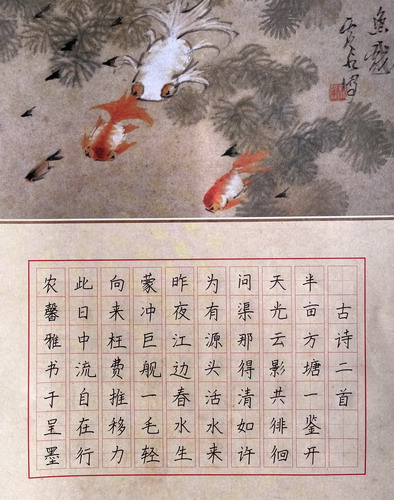 古诗二首
半亩方塘一鉴开
天光云影共徘徊
问渠那得清如许
为有源头活水来
昨夜江边春水生
蒙冲巨舰一毛轻
向来枉费推移力
此日中流自在行
农馨雅书于呈墨